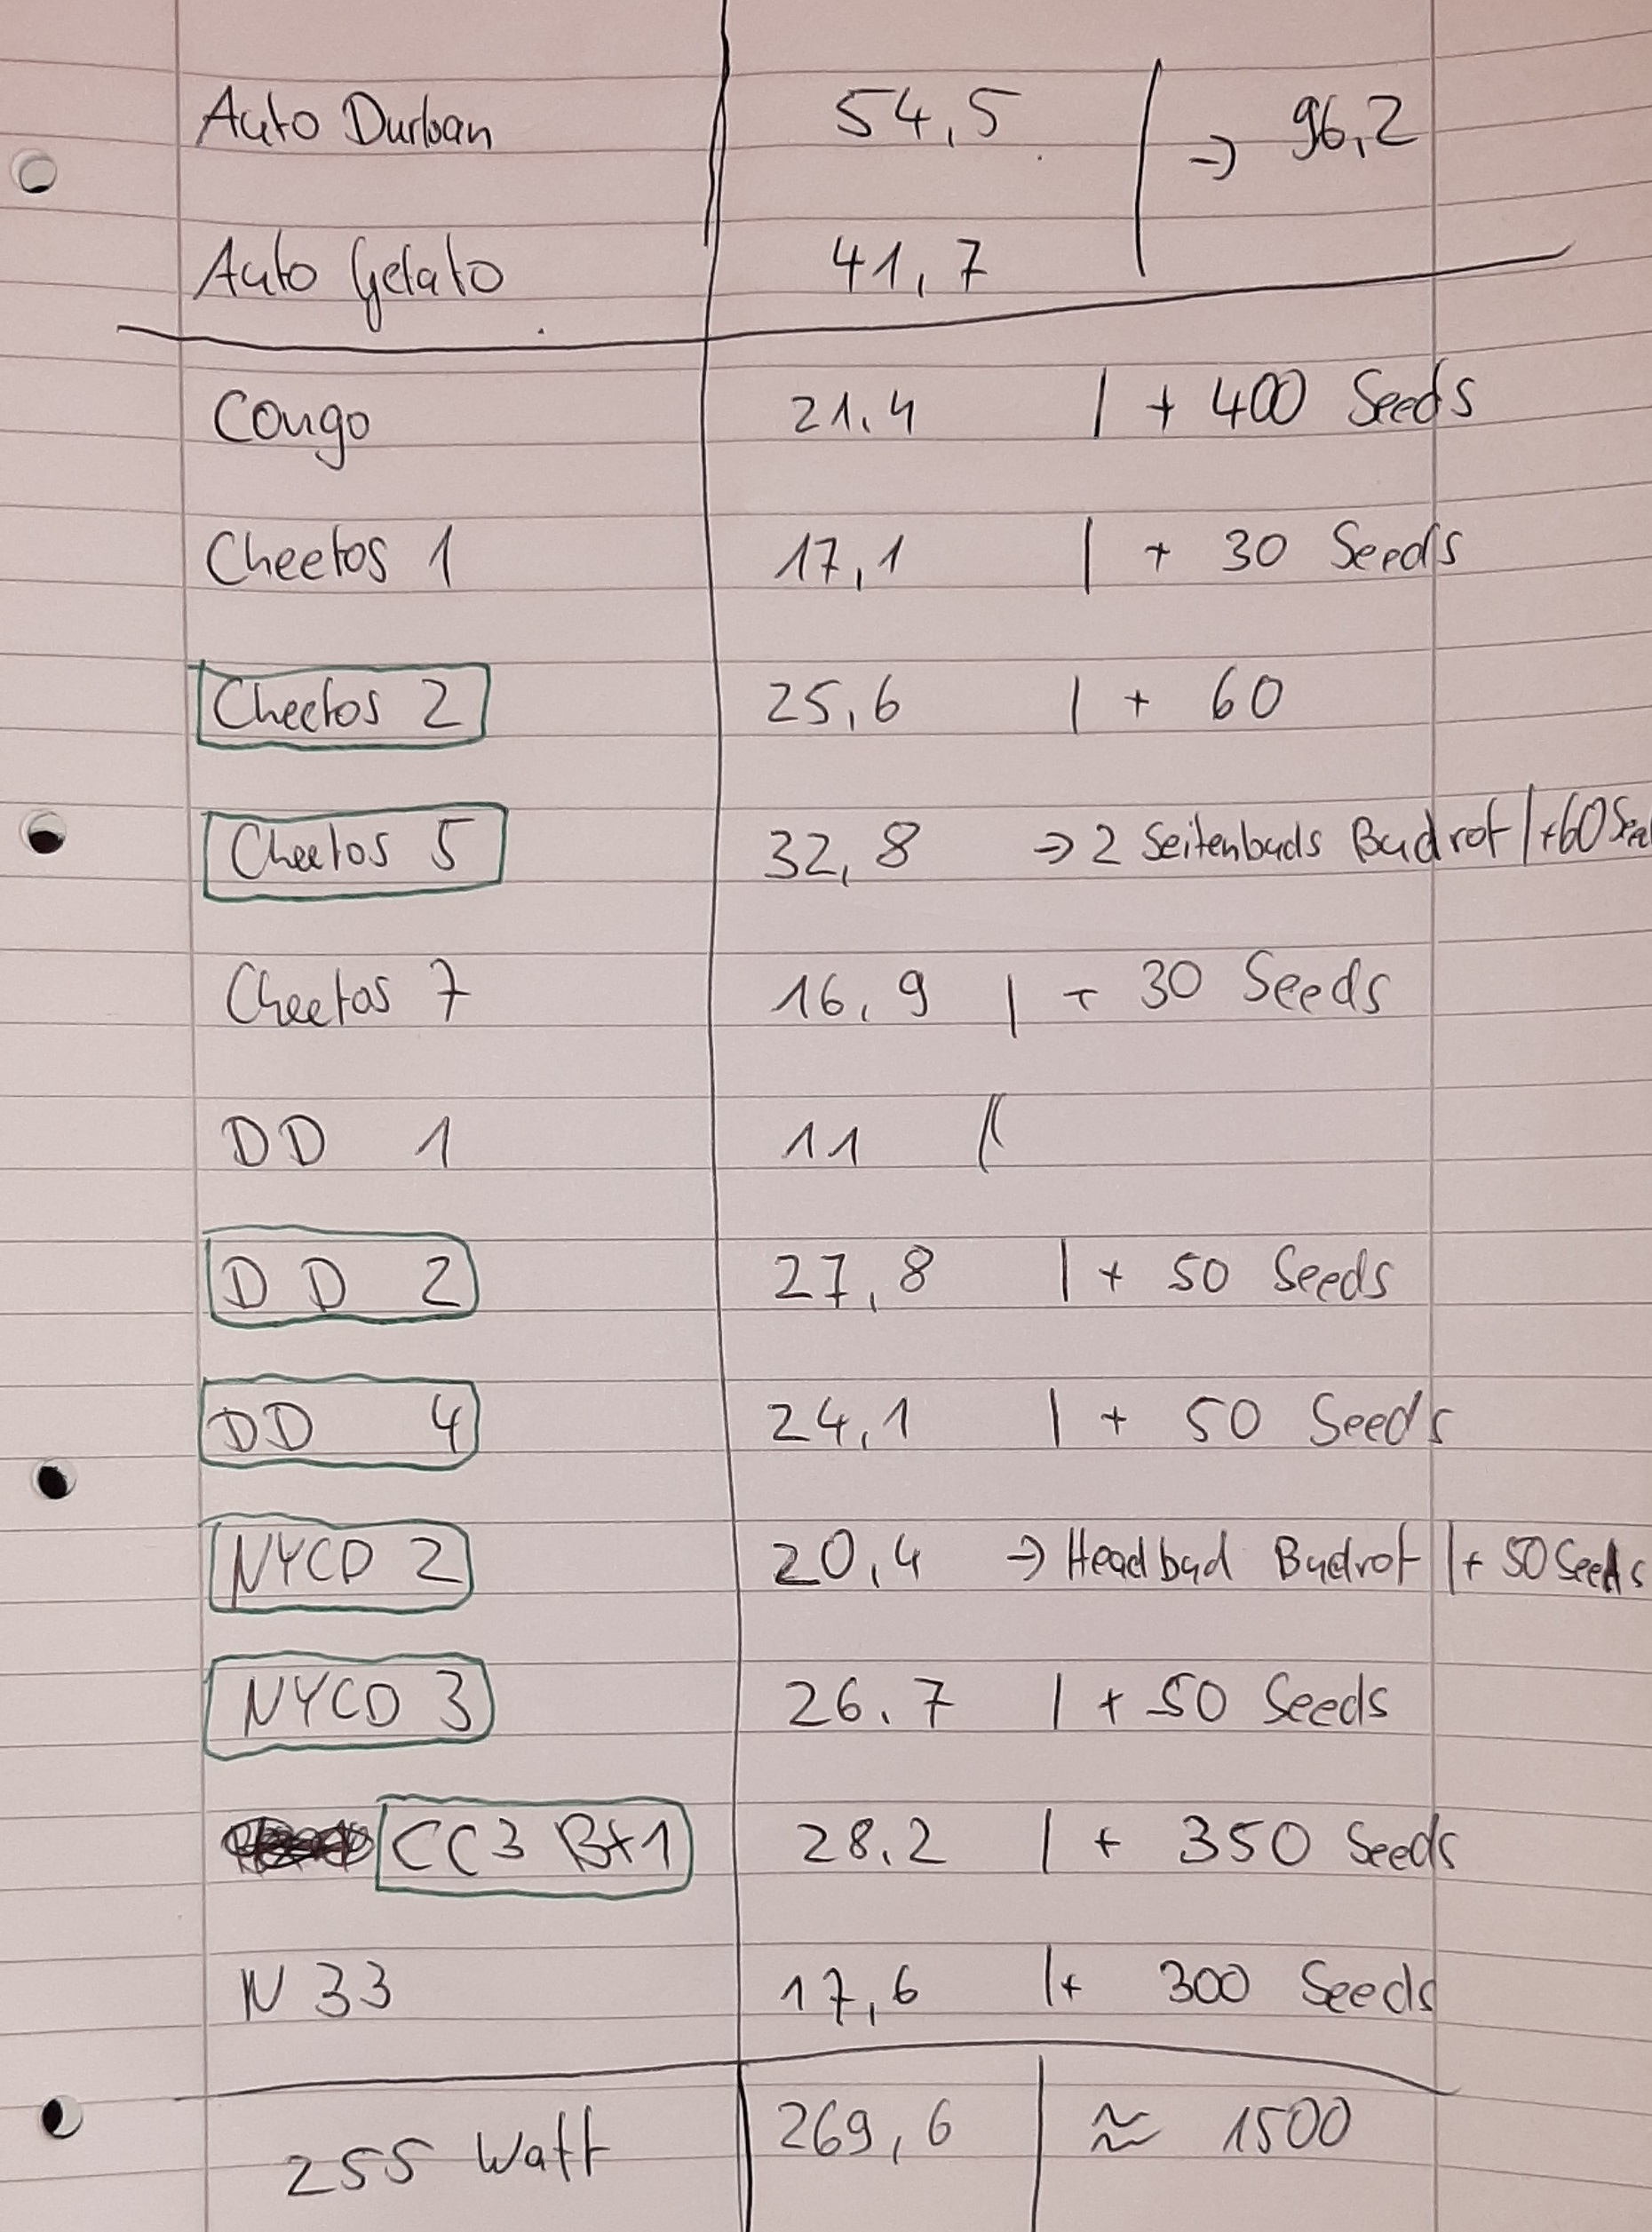 Auto Durban 54,5 → 96,2
Auto Gelato 41,7
Congo 21,4 | + 400 Seeds
Cheetos 1 17,1 | + 30 Seeds
Cheetos 2 25,6 | + 60
Cheetos 5 32,8 → 2 Seitenbuds Budrot | +60 See
Cheetos 7 16,9 | + 30 Seeds
DD 1 11 |
DD 2 27,8 | + 50 Seeds
DD 4 24,1 | + 50 Seeds
NYCD 2 20,4 → Headbud Budrot | + 50 Seeds
NYCD 3 26,7 | + 50 Seeds
CC3 Bx1 28,2 | + 350 Seeds
N 33 17,6 | + 300 Seeds
255 Watt 269,6 | ≈ 1500